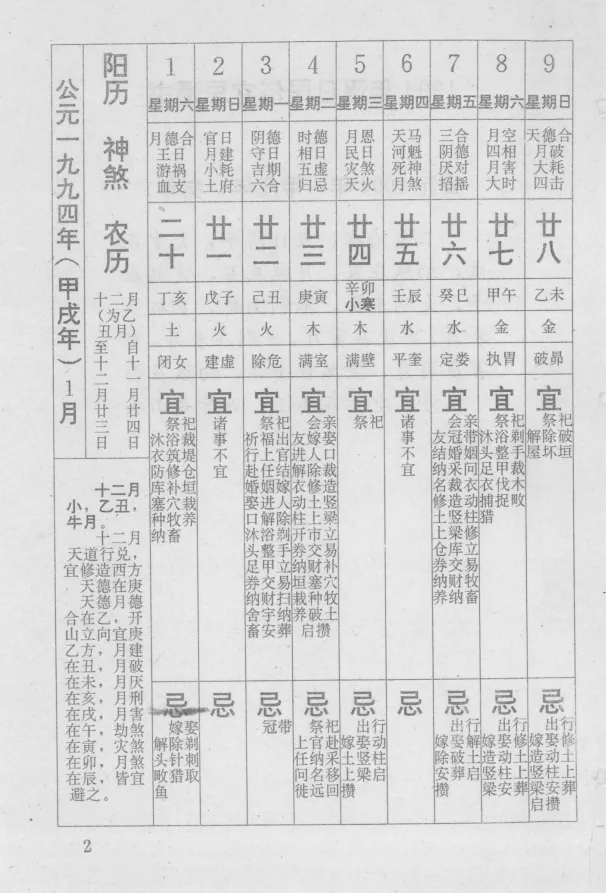 公元一九九四年(甲戌年)1月
阳历 神煞 农历
十二月
(为乙
丑月)
自十一月廿四日
至十二月廿三日
十二月
小,乙丑,
牛月。
十二月
天道行兑,
宜修造西方
天德在庚
天德月德
合在乙,开
山立向宜庚
乙方,月建
在丑,月破
在未,月厌
在亥,月刑
在戌,月害
在午,劫煞
在寅,灾煞
在卯,月煞
在辰,皆宜
避之。
1
星期六
月德合
王日
游祸
血支
二十
丁亥
土
闭女
宜
祭祀
沐浴裁
衣筑堤
防修仓
库补垣
塞穴栽
种牧养
纳畜
忌
嫁娶
解除剃
头针刺
畋猎取
鱼
2
星期日
官日
月建
小耗
土府
廿一
戊子
火
建虚
宜
诸事不宜
忌
3
星期一
阴德
守日
吉期
六合
廿二
己丑
火
除危
宜
祭祀
祈福出
行上官
赴任结
婚姻嫁
娶进人
口解除
沐浴剃
头整手
足甲立
券交易
纳财扫
舍宇纳
畜安葬
忌
冠带
4
星期二
时德
相日
五虚
归忌
廿三
庚寅
木
满室
宜
会亲
友嫁娶
进人口
解除裁
衣修造
动土竖
柱上梁
开市立
券交易
纳财补
垣塞穴
栽种牧
养破土
启攒
忌
祭祀
上官赴
任纳采
问名移
徙远回
5
星期三
月恩
民日
灾煞
天火
廿四
辛卯
小寒
木
满壁
宜
祭祀
忌
出行
嫁娶动
土竖柱
上梁启
攒
6
星期四
天马
河魁
死神
月煞
廿五
壬辰
水
平奎
宜
诸事不宜
忌
7
星期五
三合
阴德
厌对
招摇
廿六
癸巳
水
定娄
宜
会亲
友冠带
结婚姻
纳采问
名裁衣
修造动
土竖柱
上梁修
仓库立
券交易
纳财牧
养纳畜
忌
出行
嫁娶解
除破土
安葬启
攒
8
星期六
月空
四相
月害
大时
廿七
甲午
金
执胃
宜
祭祀
沐浴剃
头整手
足甲裁
衣伐木
捕捉畋
猎
忌
出行
嫁娶修
造动土
竖柱上
梁安葬
9
星期日
天德合
月破
大耗
四击
廿八
乙未
金
破昴
宜
祭祀
解除破
屋坏垣
忌
出行
嫁娶修
造动土
竖柱上
梁安葬
启攒
2